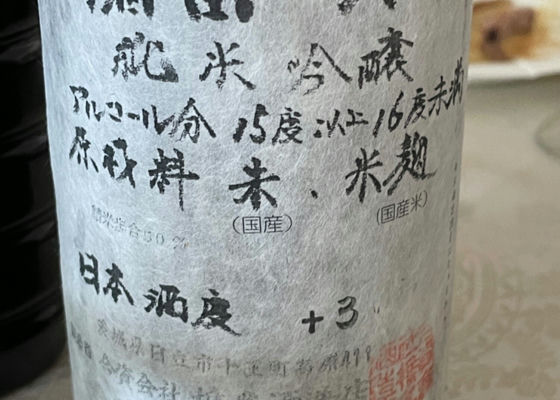 純米吟醸
アルコール分 15度以上16度未満
原材料 米、米麹
(国産) (国産米)
精米歩合50%
日本酒度 +3
茨城県日立市十王町
合資会社